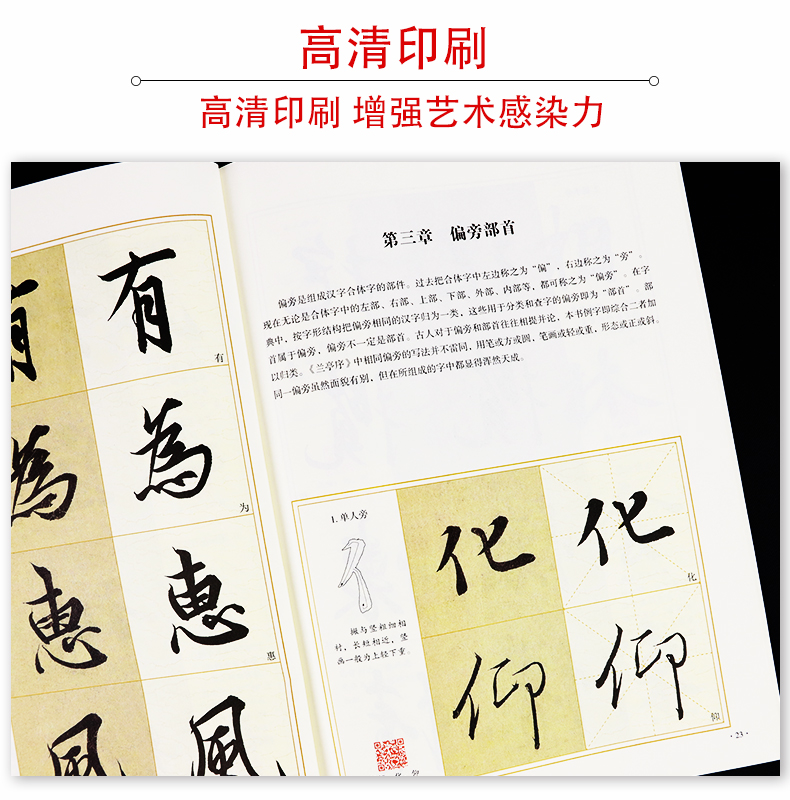 高清印刷
高清印刷 增强艺术感染力
有
有
为
為
为
惠
惠
惠
風
風
第三章 偏旁部首
偏旁是组成汉字合体字的部件。过去把合体字中左边称之为“偏”，右边称之为“旁”。
现在无论是合体字中的左部、右部、上部、下部、外部、内部等，都可称之为“偏旁”。在字
典中，按字形结构把偏旁相同的汉字归为一类，这些用于分类和查字的偏旁即为“部首”。部
首属于偏旁，偏旁不一定是部首。古人对于偏旁和部首往往相提并论，本书例字即综合二者加
以归类。《兰亭序》中相同偏旁的写法并不雷同，用笔或方或圆，笔画或轻或重，形态或正或斜。
同一偏旁虽然面貌有别，但在所组成的字中都显得浑然天成。
1. 单人旁
亻
撇与竖粗细相
衬，长短相近，竖
画一般为上轻下重。
化 仰
化 化
化
仰 仰
仰
· 23 ·